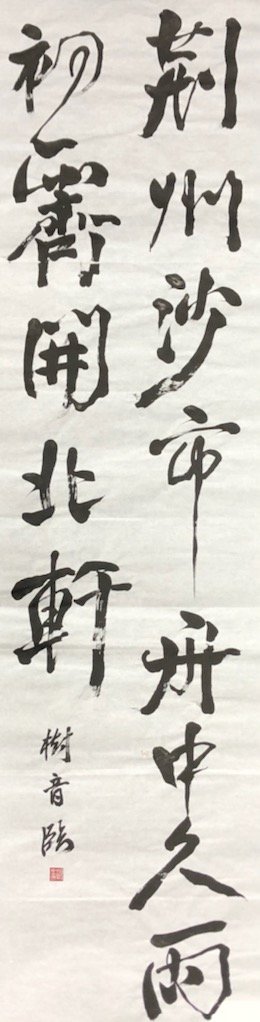 荆州沙市舟中久雨
初霽開北軒
樹音臨